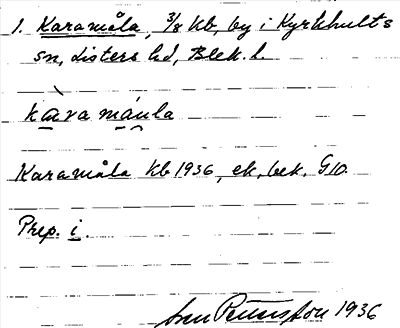 1. Karamåla, 3/8 kb, by i Kyrkhults
sn, Listers hd, Blek. l.
kàramáula
Karamåla Kb 1936, ek. bek. G10.
Prep. i.
Pettersson 1936